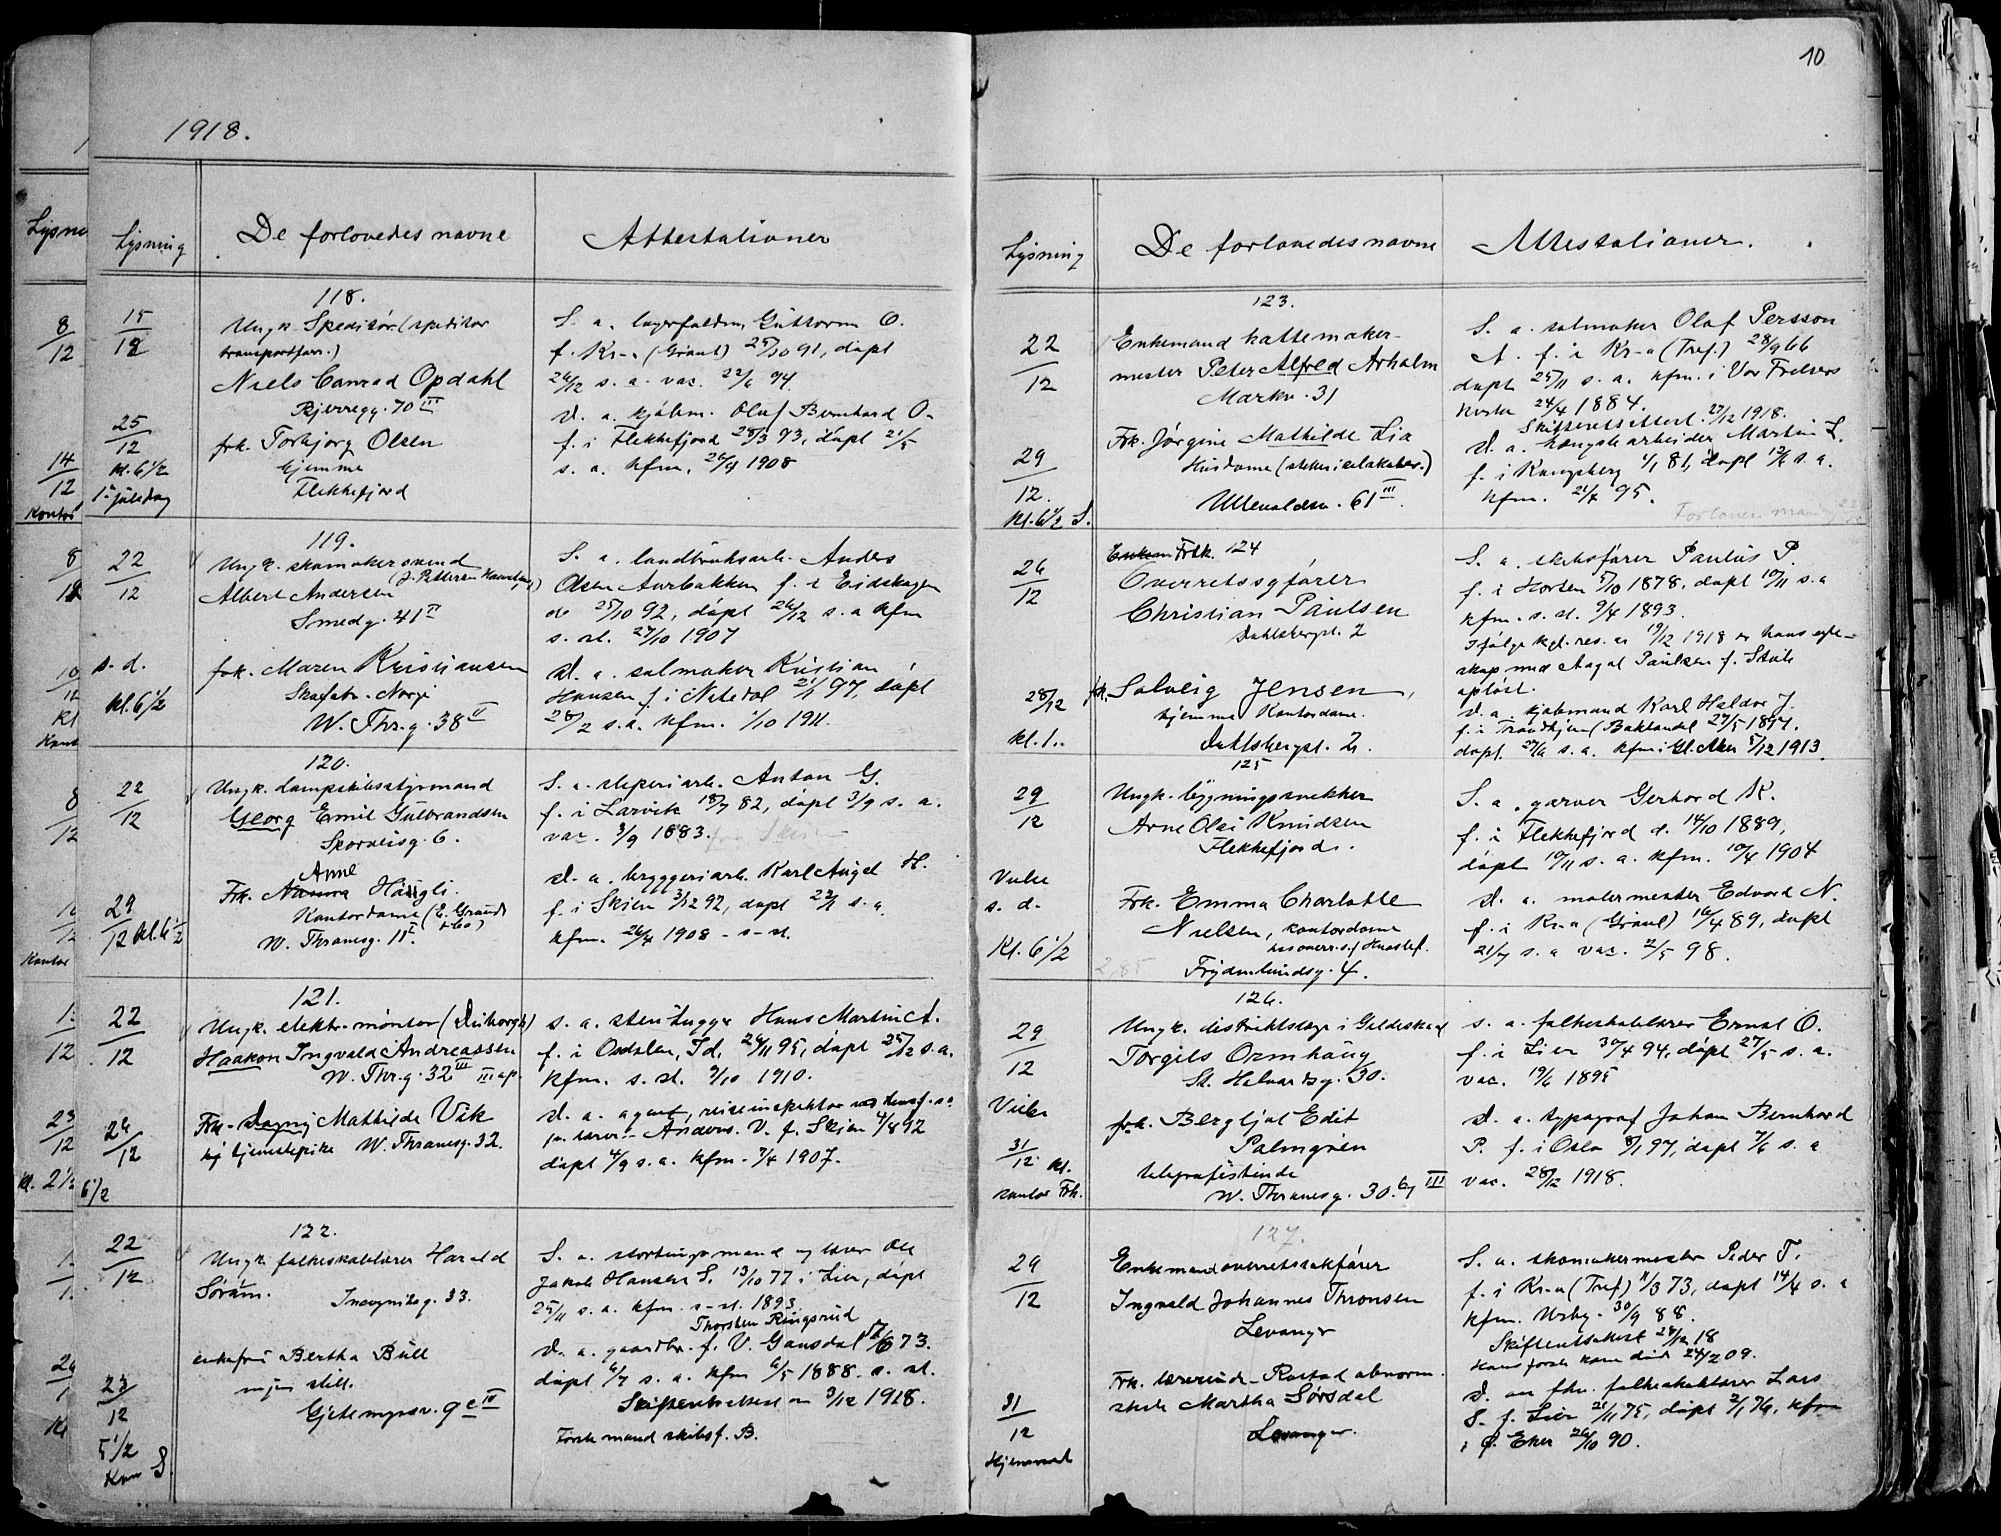 10
1918.
Lysning
De forlovedes navne
Attestationer
118.
15/12
Ungk. Speditør (speditør
transportforr.)
Niels Conrad Opdahl
Bjerregg. 70 III
25/12
kl. 6 1/2
1. juledag
frk. Torbjørg Olsen
hjemme
Flekkefjord
S. a. lagerfuldm. Guttorm O.
f. Kr-a (Grønl) 25/10 91, døpt
26/12 s. a. vac. 22/6 94.
D. a. kjøbm. Olaf Bernhard O.
f. i Flekkefjord 28/3 93, døpt 21/5
s. a. kfm. 26/9 1908
119.
22/12
Ungk. skomakersvend
(J. Pettersen
Albert Andersen
Smedg. 41 II
s. d.
kl. 6 1/2
frk. Maren Kristiansen
Skofabr. Norge
W. Thr.g. 38 II
S. a. landbruksarb. Anders
Olsen Aurbakken f. i Eidskogen
25/10 92, døpt 26/12 s. a kfm
s. st. 27/10 1907
D. a. salmaker Kristian
Hansen f. i Nitedal 21/1 97, døpt
28/2 s. a. kfm. 1/10 1911.
120.
22/12
Ungk. dampskibsstyrmand
Georg Emil Gulbrandsen
Skovveisg. 6.
Anne
29/12 kl. 6 1/2
Frk. Haugli.
Kontordame (E. Grandt
& Co)
W. Thranesg. 11 I.
S. a. sliperiarb. Anton G.
f. i Larvik 18/7 82, døpt 3/9 s. a.
vac. 3/9 1883.
D. a. bryggeriarb. Karl August H.
f. i Skien 3/12 92, døpt 22/1 s. a.
kfm. 26/4 1908 s. st.
121.
22/12
Ungk. elektr. montør
Haakon Ingvald Andreassen
W. Thr.g. 32 III
24/12
6 1/2
Frk. Dagny Mathilde Vik
hj tjenestepike W. Thranesg. 32.
S. a. stenhugger Hans Martin A.
f. i Osdalen, Id. 24/11 95, døpt 25/12 s. a.
kfm. s. st. 9/10 1910.
D. a. agent, reiseinspektør
Anders. V. f. Skien 4/8 92
døpt 4/9 s. a. kfm. 7/4 1907.
122.
22/12
Ungk. folkeskolelærer Harald
Sørum. Incognitog. 33.
23/12
5 1/2
enkefru Bertha Bull
ingen still.
Gjetemyrsv. 9 c IV
S. a. stortingsmand og lærer Ole
Jakob Hansen S. 13/10 77 i Lier, døpt
25/11 s. a. kfm. s. st. 1893.
Thorsten Ringsrud
D. a. gaardbr. f. V. Gausdal 12/6 73.
døpt 6/7 s. a. kfm 6/5 1888 s. st.
Skifteretsattest av 3/12 1918.
Første mand skibsf. B.
Lysning
De forlovedes navne
Attestationer.
123.
22/12
Enkemand hattemaker-
mester Peter Alfred Arholm
Markv. 31
29/12.
Kl. 6 1/2 S.
Frk. Jørgine Mathilde Lia
Husdame
Ullevaldsv. 61 III.
S. a. salmaker Olof Persson
A. f. i Kr-a (Tref.) 28/9 66
døpt 25/11 s. a. kfm. i Vor Frelsers
kirke 24/4 1884.
Skifteretsattest. 27/12 1918.
D. a. Kongsb. arbeider Martin L.
f. i Kongsberg 1/1 81, døpt s. a.
kfm. 95.
124
26/12
Frk.
Overretssagfører
Christian Paulsen
Dahlsbergst. 2
28/12
kl. 1..
frk. Solveig Jensen,
hjemme Kontordame.
Dahlsbergst. 2.
S. a. skibsfører Paulus P.
f. i Horten 5/10 1878, døpt 10/11 s. a
kfm. s. st. 9/4 1893.
Ifølge kgl. res. av 19/12 1918 er hans egte-
skap med Aagot Paulsen f. Støle
opløst.
D. a. kjøbmand Karl Haldor J.
f. i Trondhjem (Baklandet 27/5 1897.
døpt 27/6 s. a. kfm i Gl. Aker 5/12 1913.
125
29/12
Ungk. bygningssnekker
Arne Olai Knudsen
Flekkefjord.
Vielse
s. d.
Kl. 6 1/2
Frk. Emma Charlotte
Nielsen, kontordame
Frydenlundsg. 4.
S. a. garver Gerhard K.
f. i Flekkefjord d. 14/10 1889,
døpt 10/11 s. a. kfm. 10/4 1904
D. a. malermester Edvard N.
f. i Kr-a (Grønl) 16/4 89, døpt
21/7 s. a vac. 2/5 98.
126.
29/12
Ungk. distriktslæge i Gildeskaal
Torgils Ormhaug
St. Halvardsg. 30.
Vielse
31/12 kl.
kontor Frk.
frk. Bergljot Edit
Palmgren
telegrafistinde
W. Thranesg. 30. III
S. a. folkeskolelærer Ernst O.
f. i Lier 30/4 94, døpt 27/5 s. a.
vac. 19/6 1895
D. a. typograf Johan Bernhard
P. f. i Oslo 8/1 97, døpt 7/6 s. a
vac. 28/12 1918.
127.
29/12
Enkemand overretssakfører
Ingvald Johannes Thronsen
Levanger
31/12
Hjemmed
Frk. lærerinde Rostad abnorm.
skole Martha Sørsdal
Levanger.
S. a. skomakermester Peder T.
f. i Kr-a (Tref) 11/3 73, døpt 14/4 s. a
kfm. Urby. 30/9 88.
Skifteretsattest 28/12 18
Hans første kone død 24/2 09.
D. av fhv. folkeskolelærer Lars
S. f. Lier 21/11 75, døpt 2/1 76, kfm
i Ø. Eker 26/10 90.